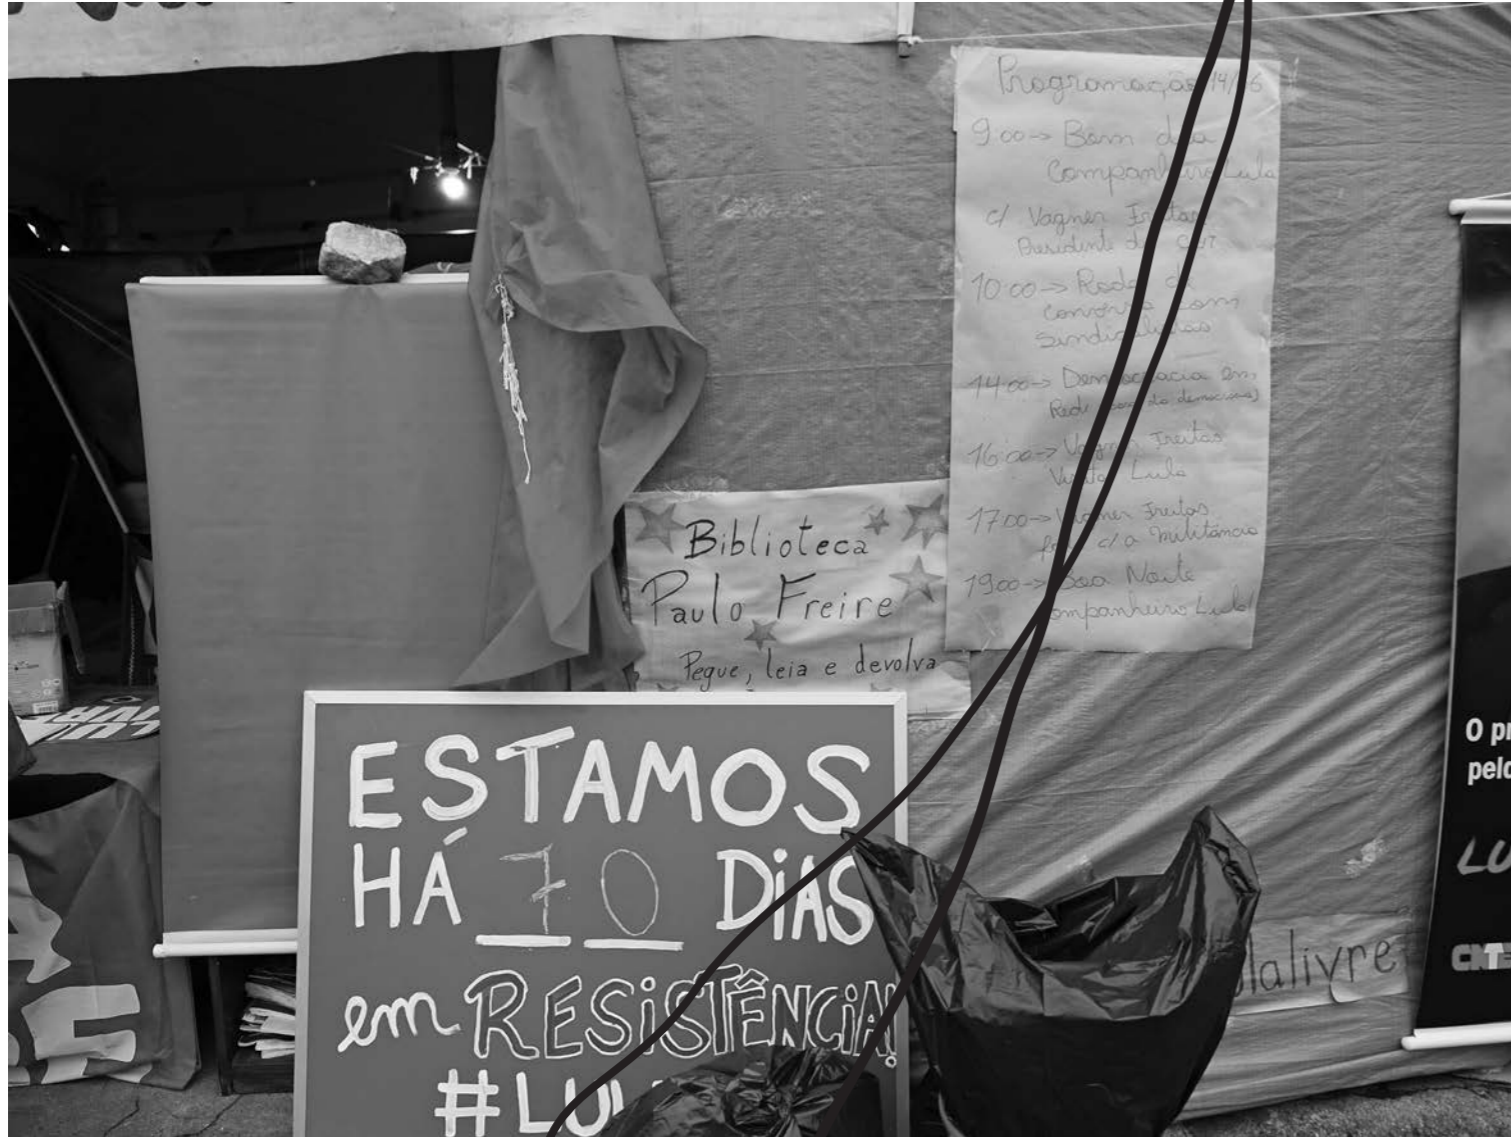 Programação 14/06
9:00 -> Bom dia
Companheiro Lula
c/ Vagner Freitas
Presidente da CUT
10:00 -> Roda de
conversa com
sindicalistas
14:00 -> Democracia em
Rede
16:00 -> Vagner Freitas
Visita Lula
17:00 -> Vagner Freitas
c/ a militância
19:00 -> Boa Noite
Companheiro Lula!
Biblioteca
Paulo Freire
Pegue, leia e devolva
ESTAMOS
HÁ 70 DiAS
em RESiSTÊNCiA!
#LUL
lalivre
O pr
pelo
LU
CNTE